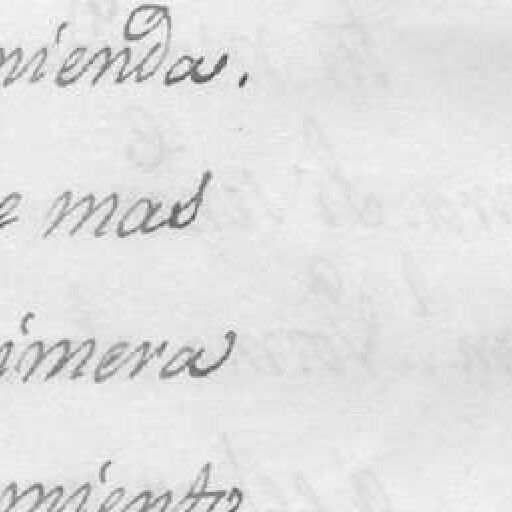 mienda.
e mas
imera
miento